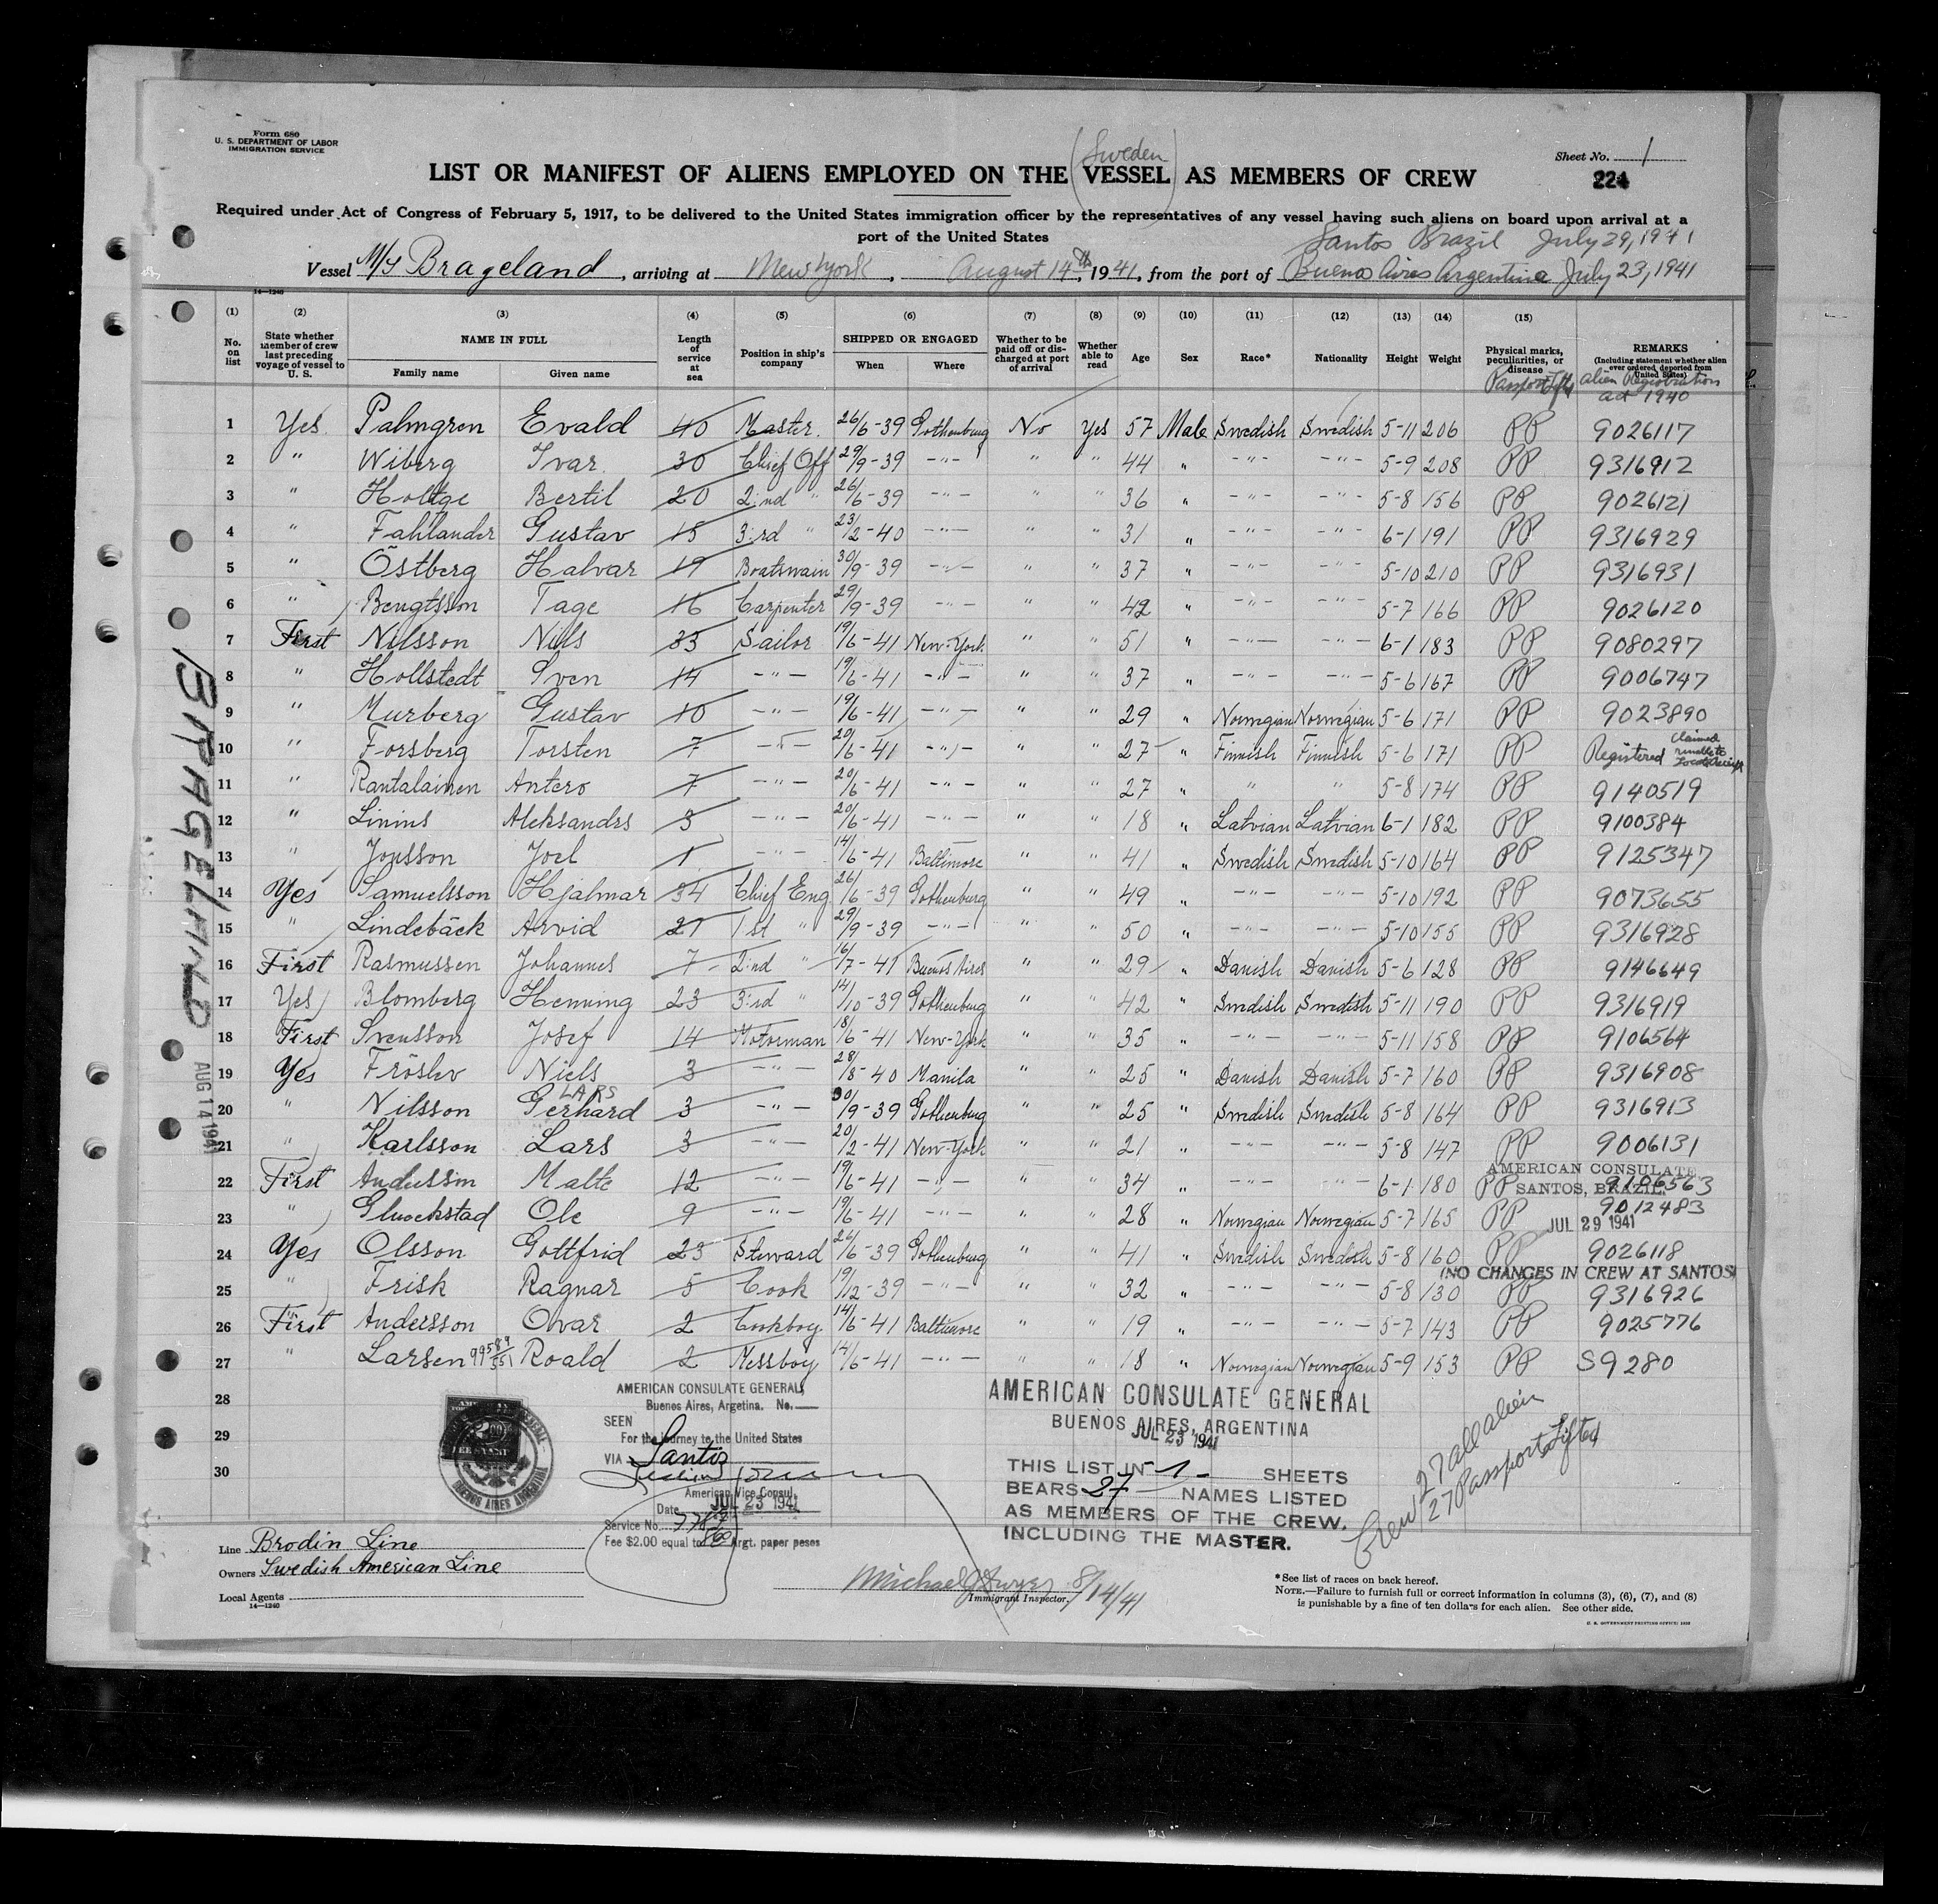 Form 680
U. S. DEPARTMENT OF LABOR
IMMIGRATION SERVICE
Sheet No. 1
224
(Sweden)
LIST OR MANIFEST OF ALIENS EMPLOYED ON THE VESSEL AS MEMBERS OF CREW
Required under Act of Congress of February 5, 1917, to be delivered to the United States immigration officer by the representatives of any vessel having such aliens on board upon arrival at a
port of the United States
Santos Brazil July 29, 1941
Vessel M/S Brageland, arriving at New York, August 14th, 1941, from the port of Buenos Aires Argentina July 23, 1941
14—1240
(1) (2) (3) (4) (5) (6) (7) (8) (9) (10) (11) (12) (13) (14) (15)
No. on list
State whether member of crew last preceding voyage of vessel to U. S.
NAME IN FULL
Family name Given name
Length of service at sea
Position in ship's company
SHIPPED OR ENGAGED
When Where
Whether to be paid off or discharged at port of arrival
Whether able to read
Age Sex Race* Nationality Height Weight
Physical marks, peculiarities, or disease
REMARKS
(Including statement whether alien ever ordered deported from United States)
Alien Registration act 1940
1 Yes Palmgren Evald 40 Master 26/6-39 Gothenburg No Yes 57 Male Swedish Swedish 5-11 206 PP 9026117
2 " Wiberg Ivar 30 Chief Off 29/9-39 -"- " " 44 " -"- -"- 5-9 208 PP 9316912
3 " Holtge Bertil 20 2:nd " 26/6-39 -"- " " 36 " -"- -"- 5-8 156 PP 9026121
4 " Fahlander Gustav 15 3:rd " 23/2-40 -"- " " 31 " -"- -"- 6-1 191 PP 9316929
5 " Östberg Halvar 19 Boatswain 30/9-39 -"- " " 37 " -"- -"- 5-10 210 PP 9316931
6 " Bengtsson Tage 16 Carpenter 29/9-39 -"- " " 42 " -"- -"- 5-7 166 PP 9026120
7 First Nilsson Nils 33 Sailor 19/6-41 New-York " " 51 " -"- -"- 6-1 183 PP 9080297
8 " Hollstedt Sven 14 -"- 19/6-41 -"- " " 37 " -"- -"- 5-6 167 PP 9006747
9 " Murberg Gustav 10 -"- 19/6-41 -"- " " 29 " Norwegian Norwegian 5-6 171 PP 9023890
10 " Forsberg Torsten 7 -"- 20/6-41 -"- " " 27 " Finnish Finnish 5-6 171 PP Registered Claimed unable to locate Receipt
11 " Rantalainen Antero 7 -"- 20/6-41 -"- " " 27 " " " 5-8 174 PP 9140519
12 " Linins Aleksandrs 3 -"- 20/6-41 -"- " " 18 " Latvian Latvian 6-1 182 PP 9100384
13 " Jonsson Joel 1 -"- 14/6-41 Baltimore " " 41 " Swedish Swedish 5-10 164 PP 9125347
14 Yes Samuelsson Hjalmar 34 Chief Eng 26/6-39 Gothenburg " " 49 " -"- -"- 5-10 192 PP 9073655
15 " Lindebäck Arvid 21 1st " 29/9-39 -"- " " 50 " -"- -"- 5-10 155 PP 9316928
16 First Rasmussen Johannes 7 2:nd " 16/7-41 Buenos Aires " " 29 " Danish Danish 5-6 128 PP 9146649
17 Yes Blomberg Henning 23 3:rd " 14/10-39 Gothenburg " " 42 " Swedish Swedish 5-11 190 PP 9316919
18 First Svensson Josef 14 Motorman 18/6-41 New-York " " 35 " -"- -"- 5-11 158 PP 9106564
19 Yes Fröslev Niels 3 -"- 28/8-40 Manila " " 25 " Danish Danish 5-7 160 PP 9316908
20 " Nilsson LARS Gerhard 3 -"- 30/9-39 Gothenburg " " 25 " Swedish Swedish 5-8 164 PP 9316913
21 " Karlsson Lars 3 -"- 20/2-41 New-York " " 21 " -"- -"- 5-8 147 PP 9006131
22 First Andersson Malte 12 -"- 19/6-41 -"- " " 34 " -"- -"- 6-1 180 PP 9106563
23 " Gluockstad Ole 9 -"- 19/6-41 -"- " " 28 " Norwegian Norwegian 5-7 165 PP 9012483
24 Yes Olsson Gottfrid 23 Steward 26/6-39 Gothenburg " " 41 " Swedish Swedish 5-8 160 PP 9026118
25 " Frisk Ragnar 5 Cook 19/12-39 -"- " " 32 " -"- -"- 5-8 130 PP 9316926
26 First Andersson Ovar 2 Cookboy 14/6-41 Baltimore " " 19 " -"- -"- 5-7 143 PP 9025776
27 " Larsen Roald 2 Messboy 14/6-41 -"- " " 18 " Norwegian Norwegian 5-9 153 PP S9280
28
29
30
AMERICAN CONSULATE
SANTOS, BRAZIL
JUL 29 1941
(NO CHANGES IN CREW AT SANTOS)
BRAGELAND
AUG 14 1941
AMERICAN CONSULATE GENERAL
Buenos Aires, Argetina. No.
SEEN
For the journey to the United States
VIA Santos
American Vice Consul.
Date JUL 23 1941
Service No.
Fee $2.00 equal to Argt. paper pesos
BUENOS AIRES ARGENTINA
AMERICAN CONSULATE GENERAL
BUENOS AIRES, ARGENTINA
JUL 23 1941
THIS LIST IN 1 SHEETS
BEARS 27 NAMES LISTED
AS MEMBERS OF THE CREW,
INCLUDING THE MASTER.
Crew 27 all alien
27 Passports Lifted
Line Brodin Line
Owners Swedish American Line
Local Agents
14—1240
Michael J Dwyer 8/14/41
Immigrant Inspector.
*See list of races on back hereof.
NOTE.—Failure to furnish full or correct information in columns (3), (6), (7), and (8)
is punishable by a fine of ten dollars for each alien. See other side.
U. S. GOVERNMENT PRINTING OFFICE